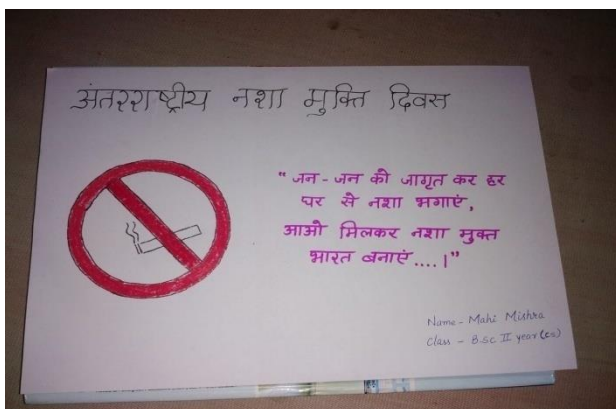 अंतरराष्ट्रीय नशा मुक्ति दिवस
"जन-जन को जागृत कर हर
घर से नशा भगाएं,
आओ मिलकर नशा मुक्त
भारत बनाएं....।"
Name - Mahi Mishra
Class - B.Sc II year (cs)